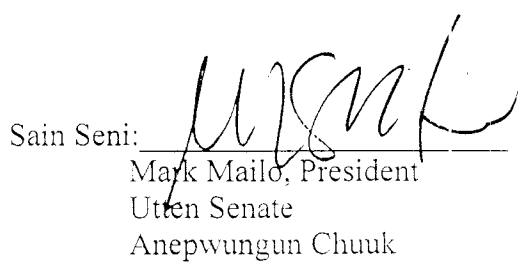 Sain Seni:
Mark Mailo, President
Utten Senate
Anepwungun Chuuk